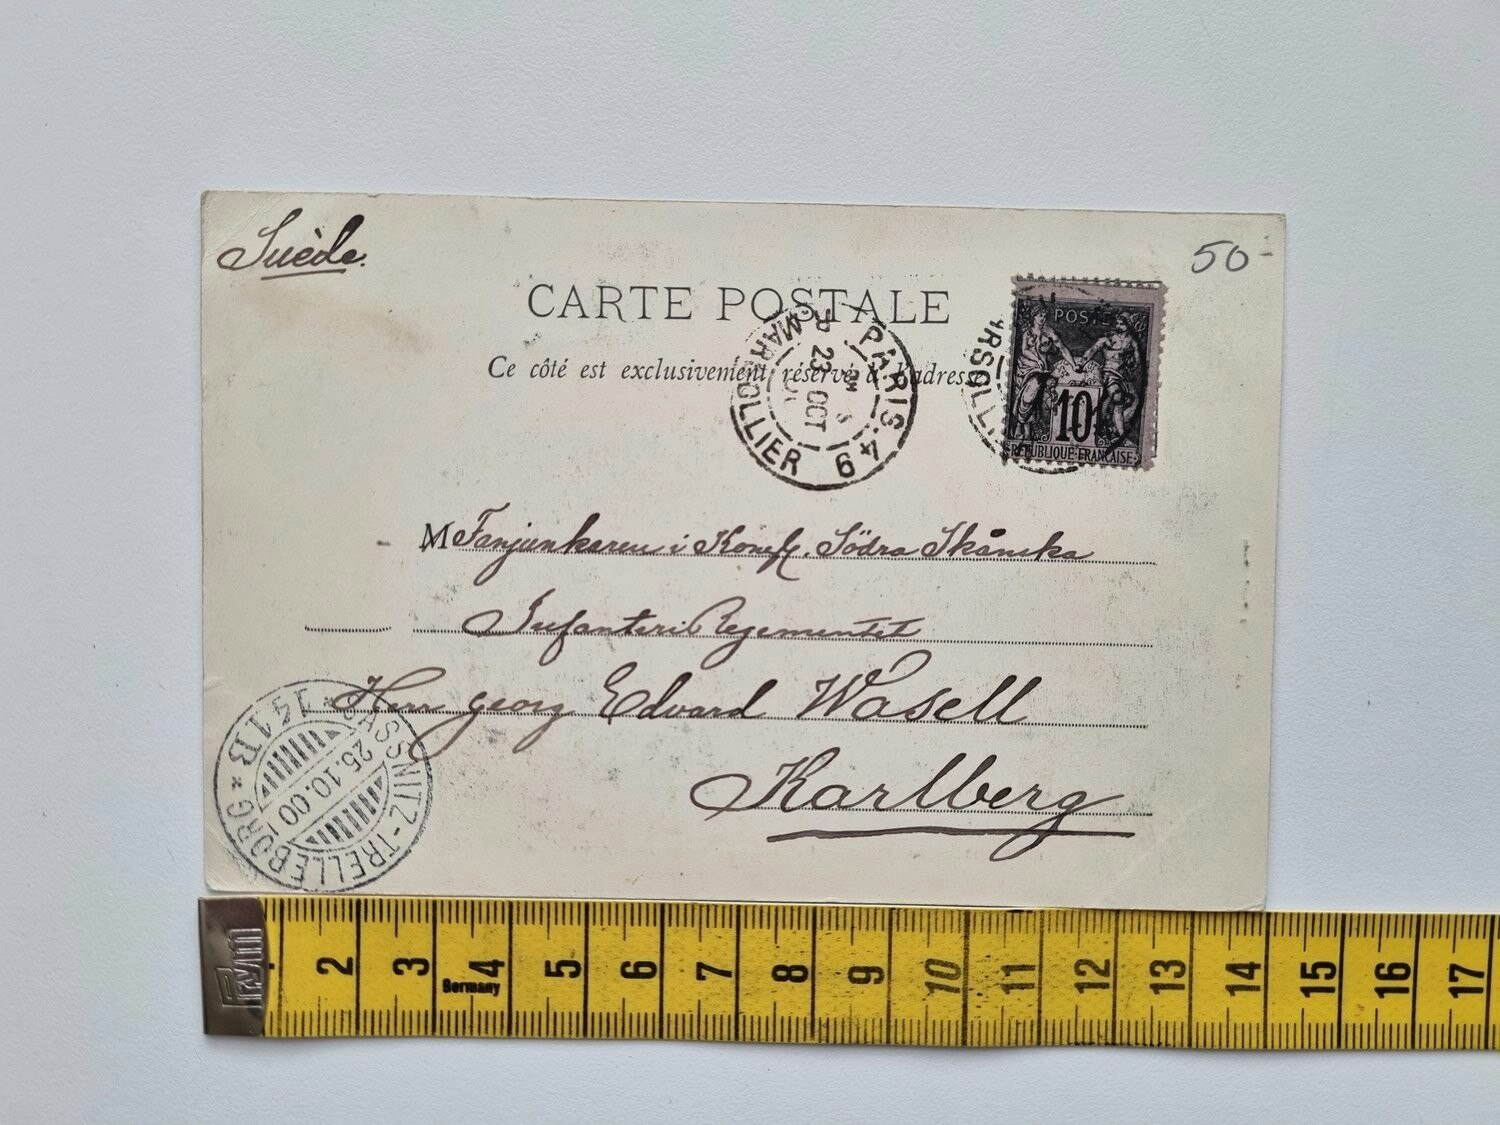 Suède.
50-
CARTE POSTALE
Ce côté est exclusivement réservé à l'adresse
POSTE
10
REPUBLIQUE FRANÇAISE
PARIS. 49
R. MARSOLLIER
23 OCT
RSOLLI
M Fanjunkaren i Kongl. Södra Skånska
Infanteri Regementet
Herr Georg Edvard Wasell
Karlberg
SASSNITZ - TRELLEBORG * 141B *
25.10.00
Prym
2 3 4 5 6 7 8 9 10 11 12 13 14 15 16 17
Germany